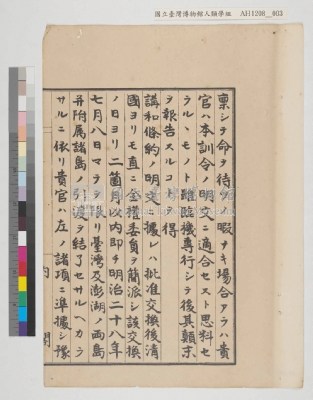 國立臺灣博物館人類學組　AH1208_403
稟シテ命ヲ待ツノ暇ナキ場合アラハ貴
官ハ本訓令ノ明文ニ適合セスト思料セ
ラルヽモノト雖臨機專行シテ後其顛末
ヲ報告スルコトヲ得
講和條約ノ明文ニ據レハ批准交換後淸
國ヨリモ直ニ全權委員ヲ簡派シ該交換
ノ日ヨリ二箇月以內卽チ明治二十八年
七月八日マテヲ限リ臺灣及澎湖ノ両島
幷附属諸島ノ引渡ヲ結了セサルヘカラ
サルニ依リ貴官ハ左ノ諸項ニ準據シ豫
內閣